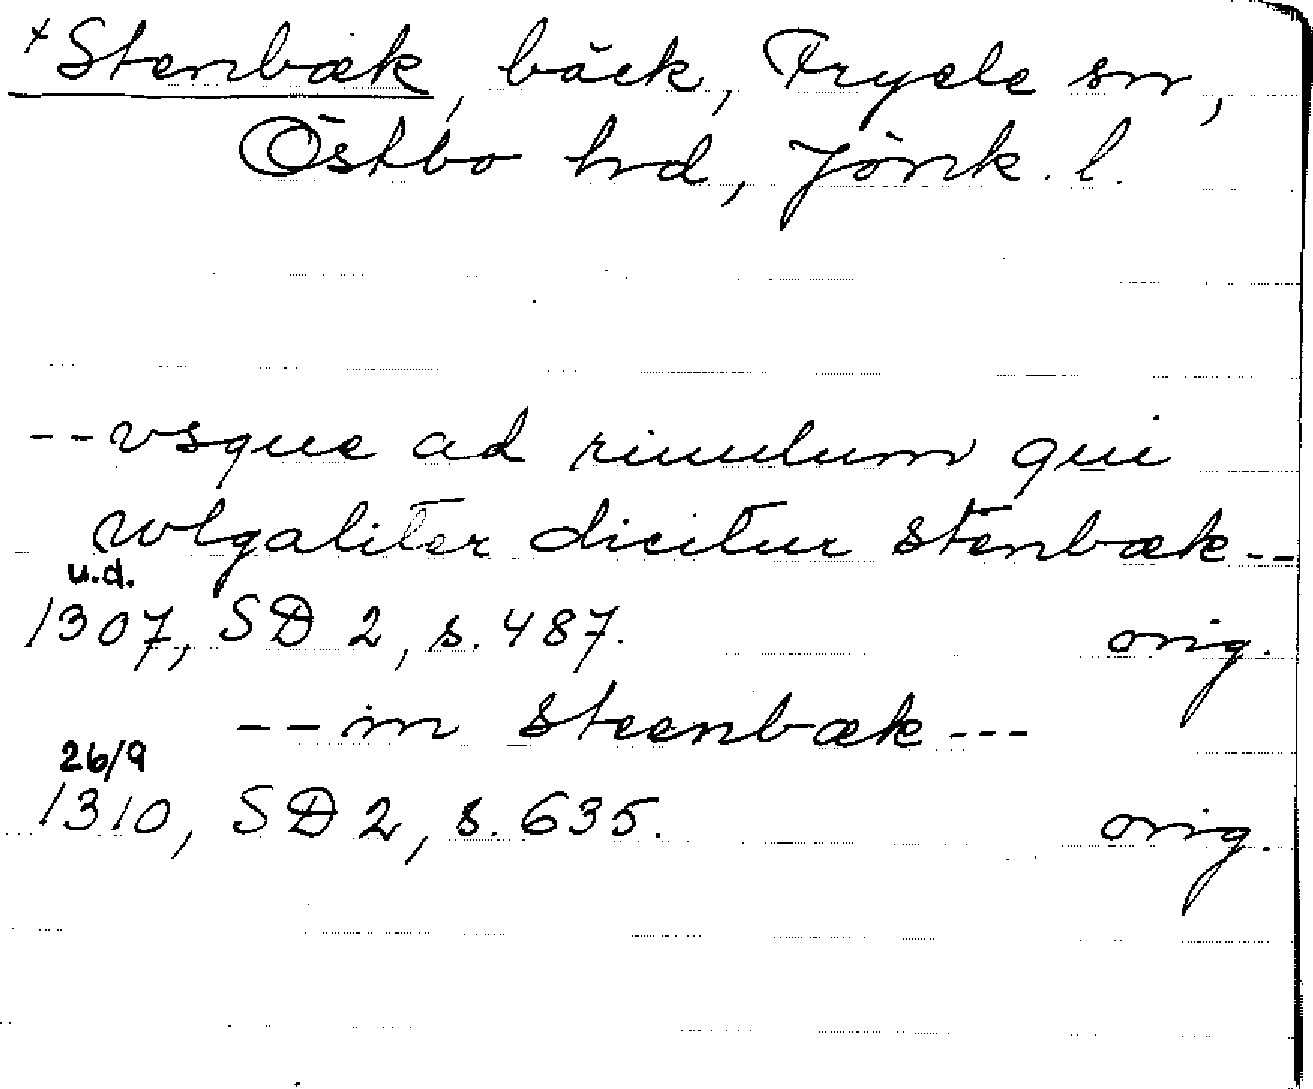 +Stenbæk, bäck, Fryele sn,
Östbo hd, Jönk. l.
--vsque ad riuulum qui
wlgaliter dicitur stenbæk--
u.d.
1307, SD 2, s. 487. orig.
--in steenbæk---
26/9
1310, SD 2, s. 635. orig.